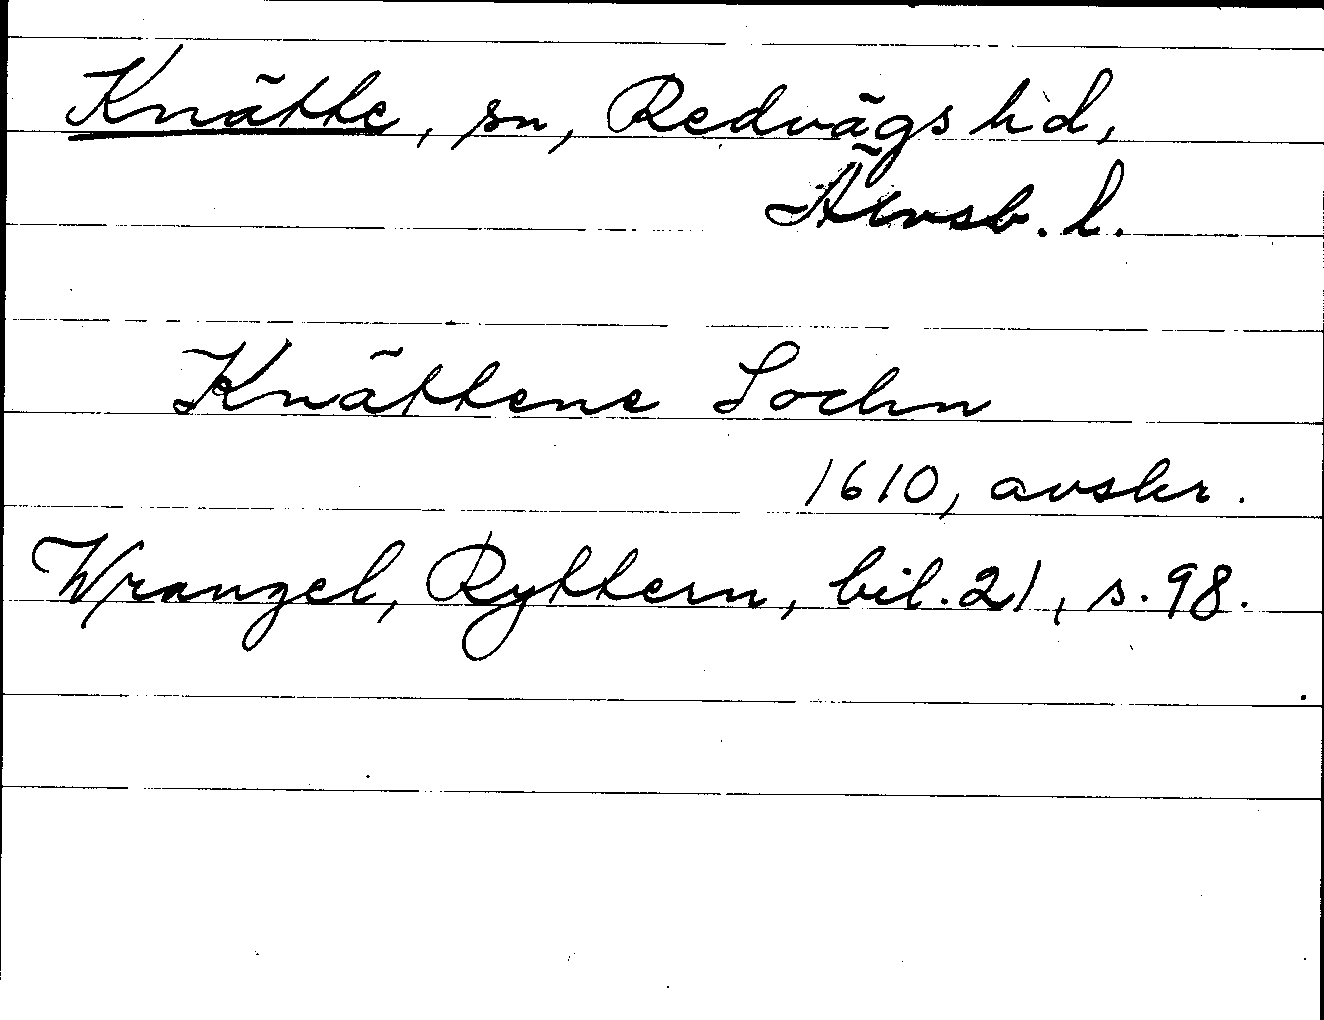 Knätte, sn, Redvägs hd,
Älvsb. l.
Knättene Sochn
1610, avskr.
Wrangel, Ryttern, bil. 21, s. 98.